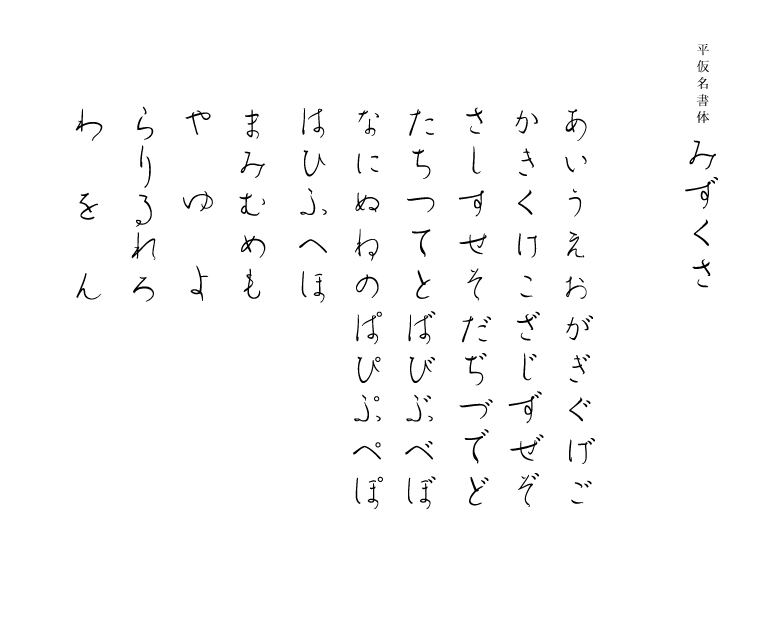 平仮名書体 みずくさ
あいうえおがぎぐげご
かきくけこざじずぜぞ
さしすせそだぢづでど
たちつてとばびぶべぼ
なにぬねのぱぴぷぺぽ
はひふへほ
まみむめも
や ゆ よ
らりるれろ
わ を ん